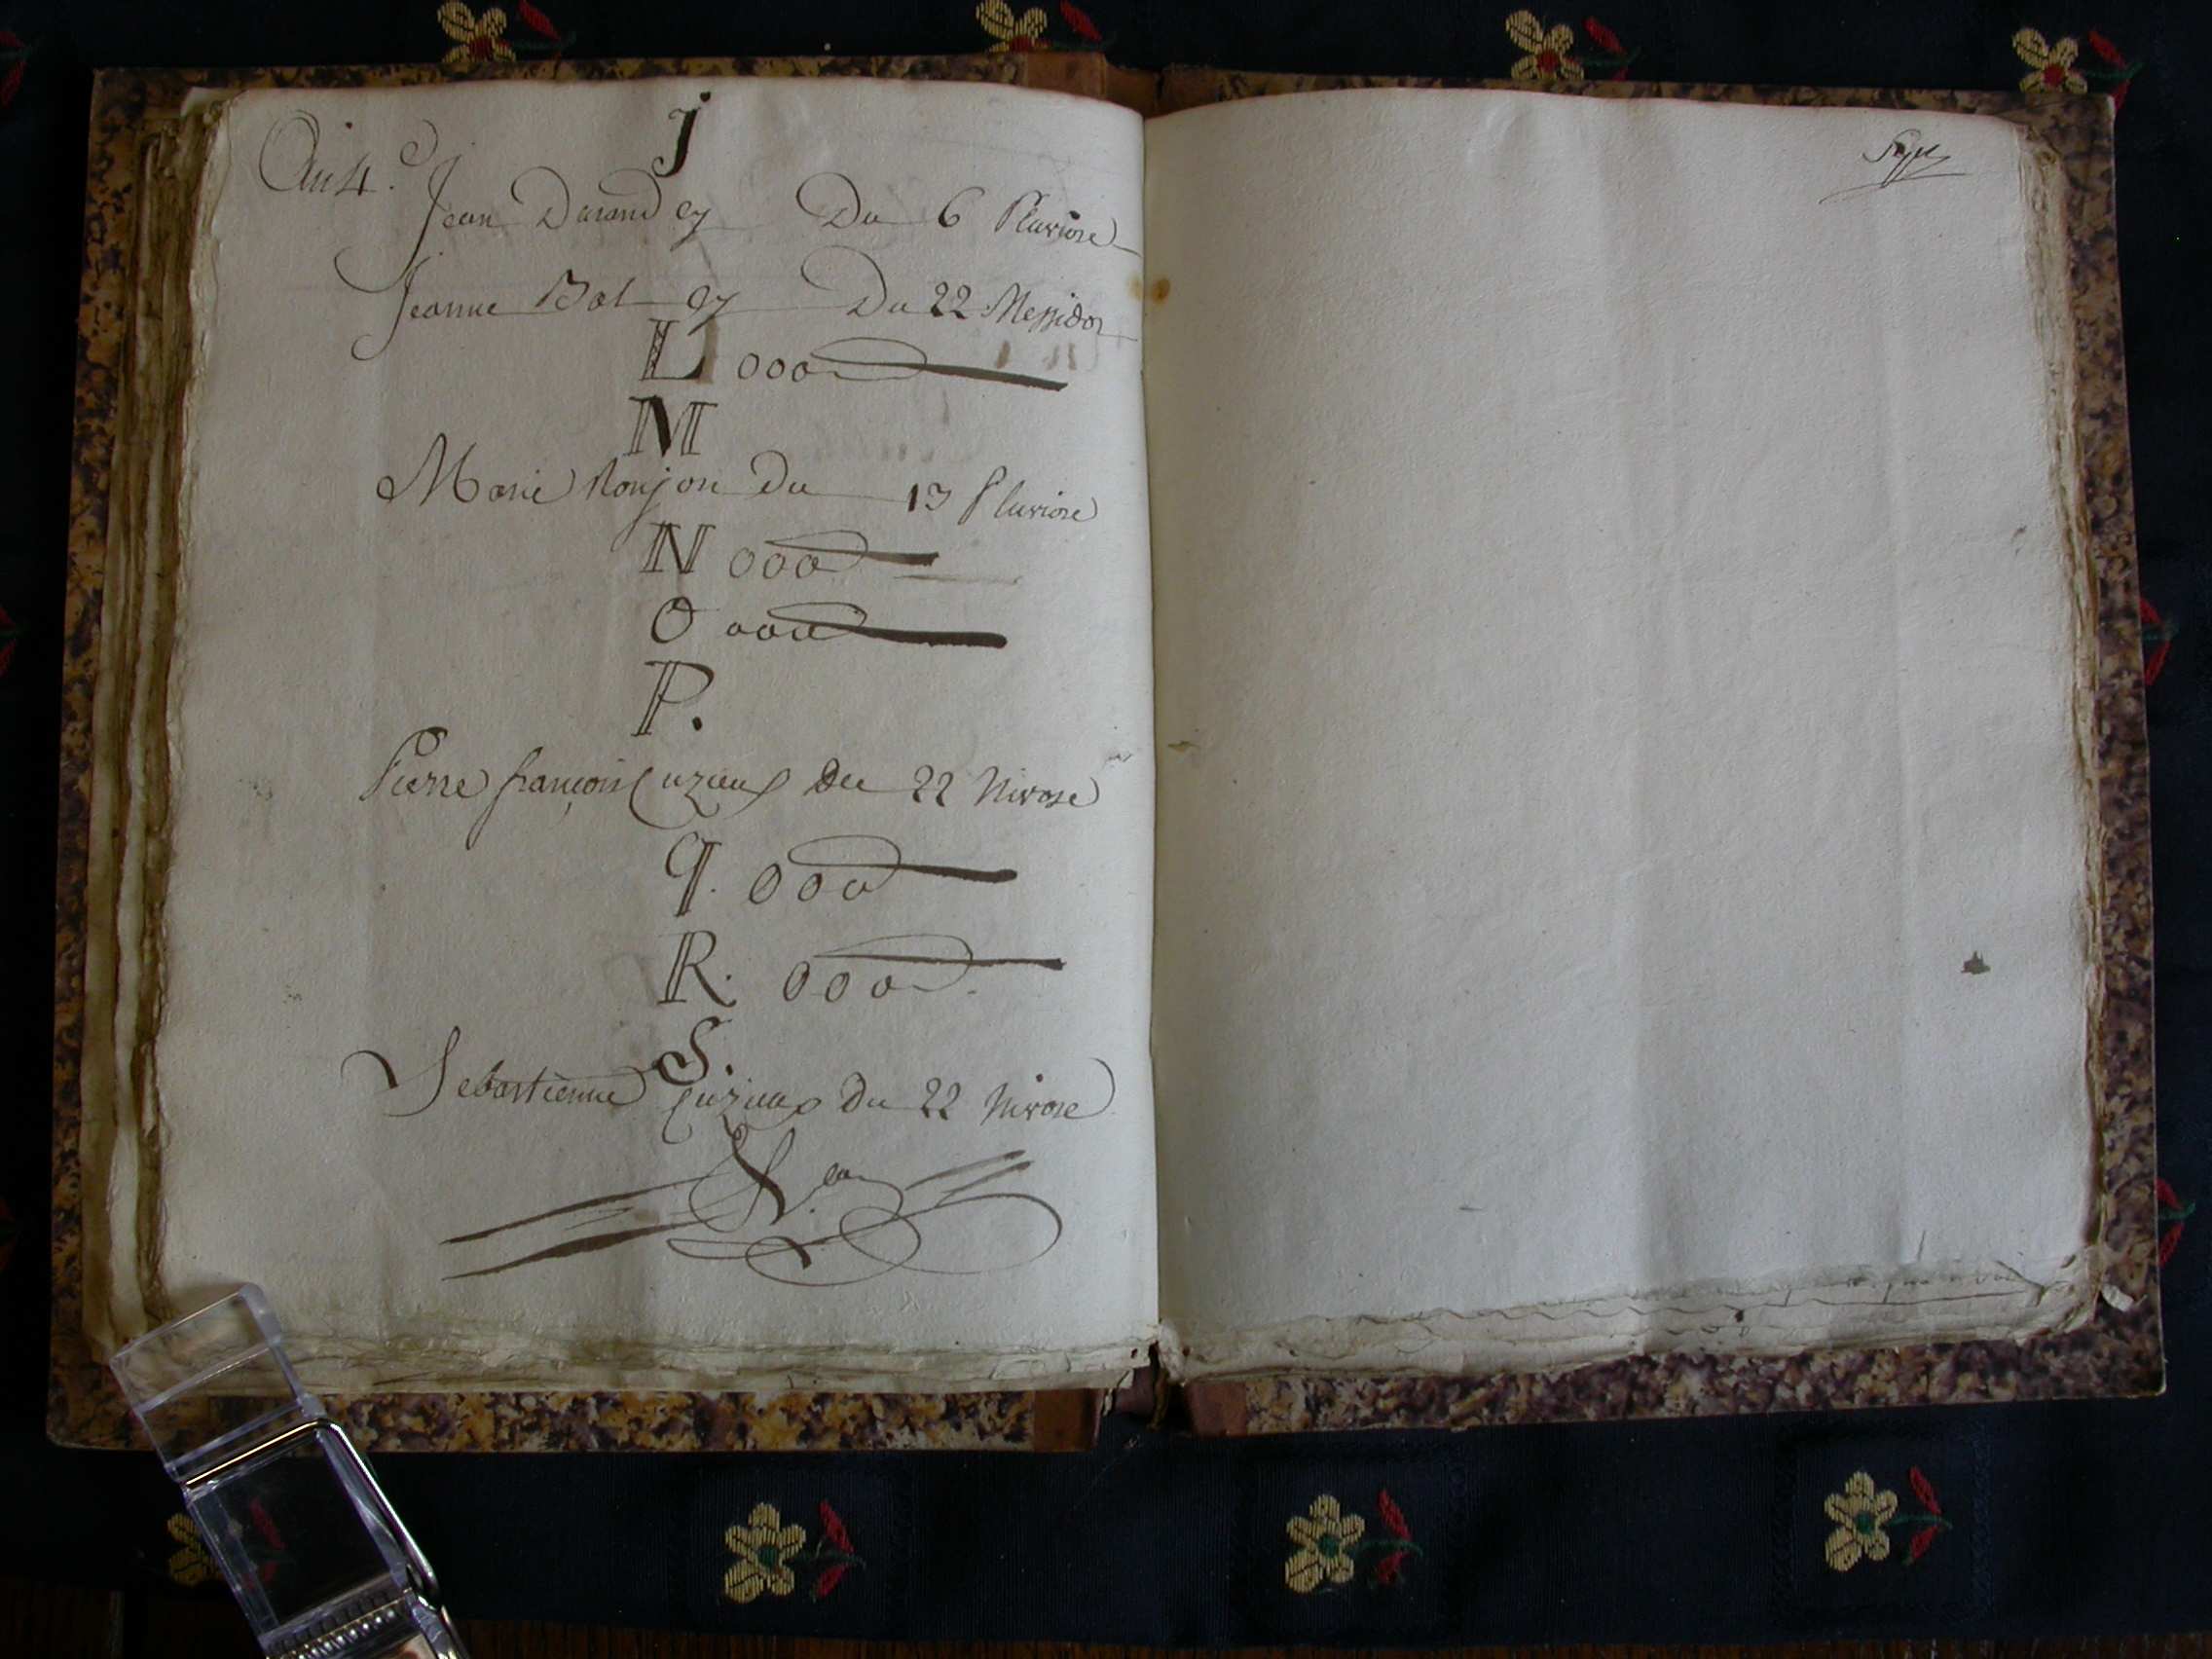 An 4.e
J
Jean Durand cy Du 6 Pluviose
Jeanne Bat cy Du 22 Messidor
L 000
M
Marie Du 13 Pluviose
N 000
O 000
P.
Pierre françois Cuzieux du 22 Nivose
q. 000
R. 000
S.
Sebastienne Cuzieux Du 22 Nivose